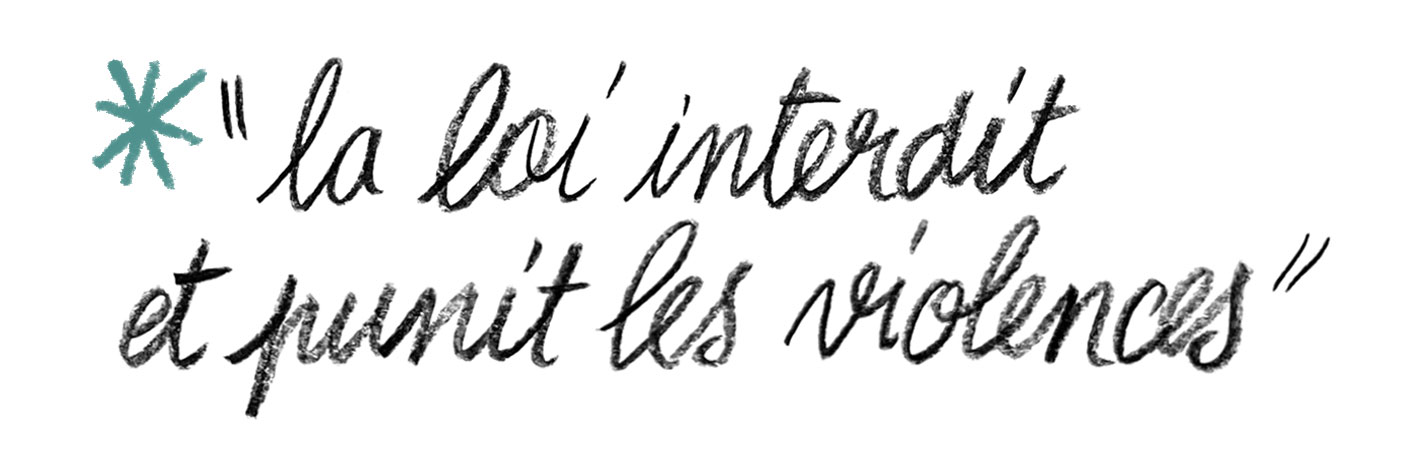 *"la loi interdit
et punit les violences"